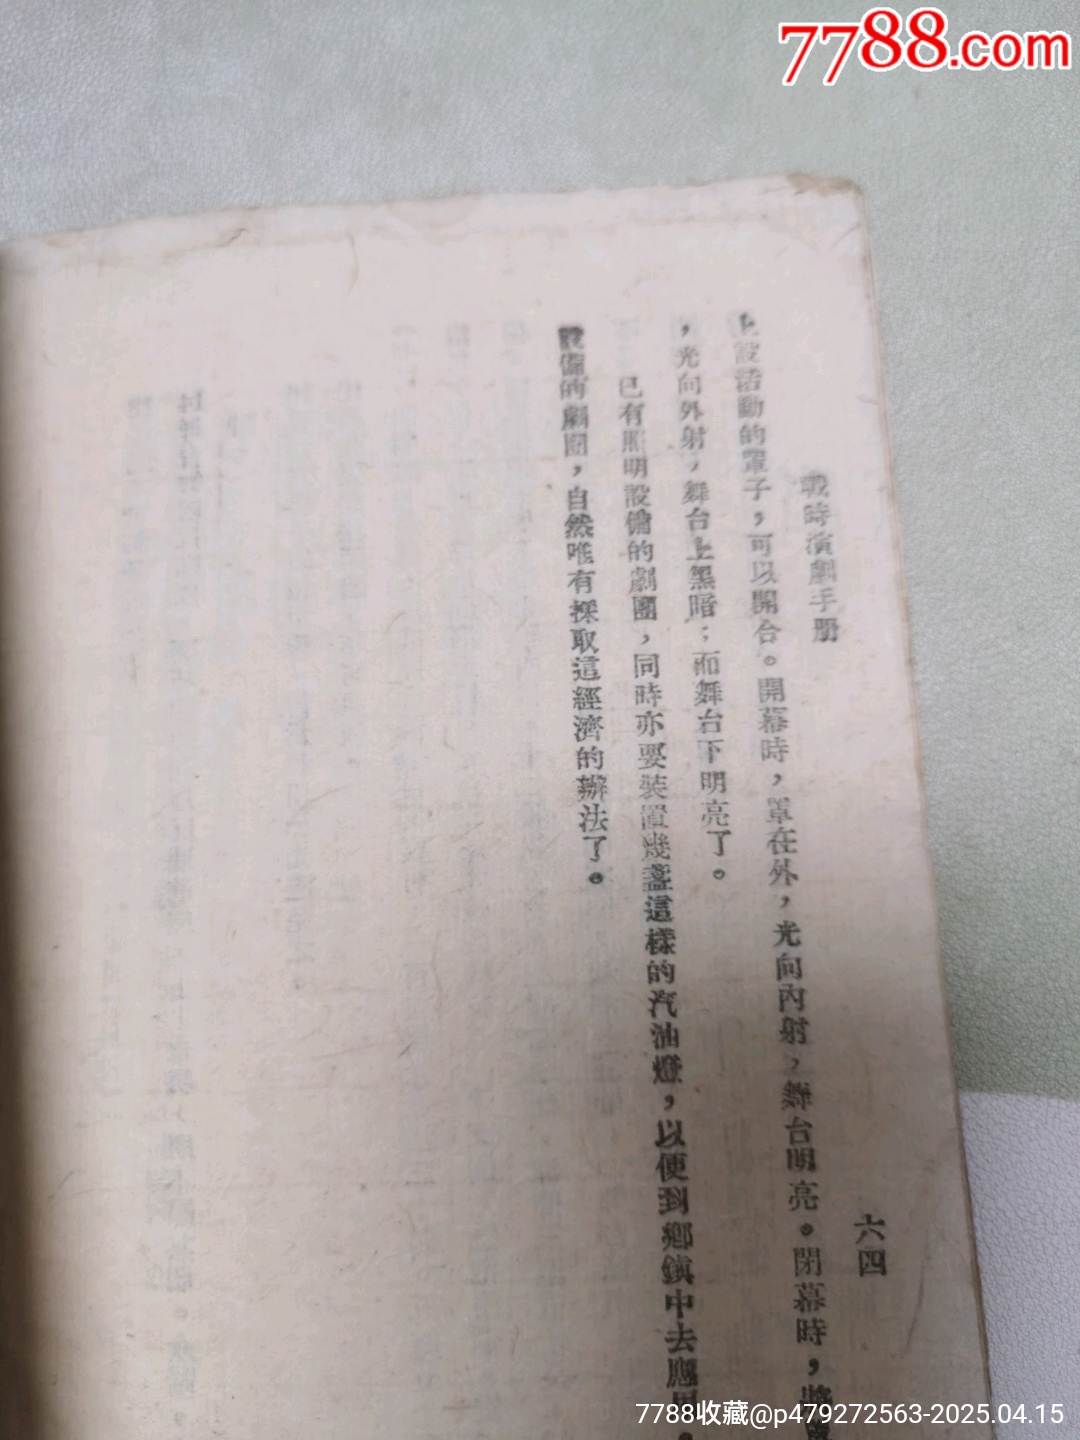 7788.com
戰時演劇手册
六四
上設活動的罩子，可以開合。開幕時，罩在外，光向內射，舞台明亮。閉幕時，將罩
，光向外射，舞台上黑暗；而舞台下明亮了。
已有照明設備的劇團，同時亦要裝置幾盞這樣的汽油燈，以便到鄉鎮中去應用。
設備的劇團，自然唯有採取這經濟的辦法了。
7788收藏@p479272563-2025.04.15